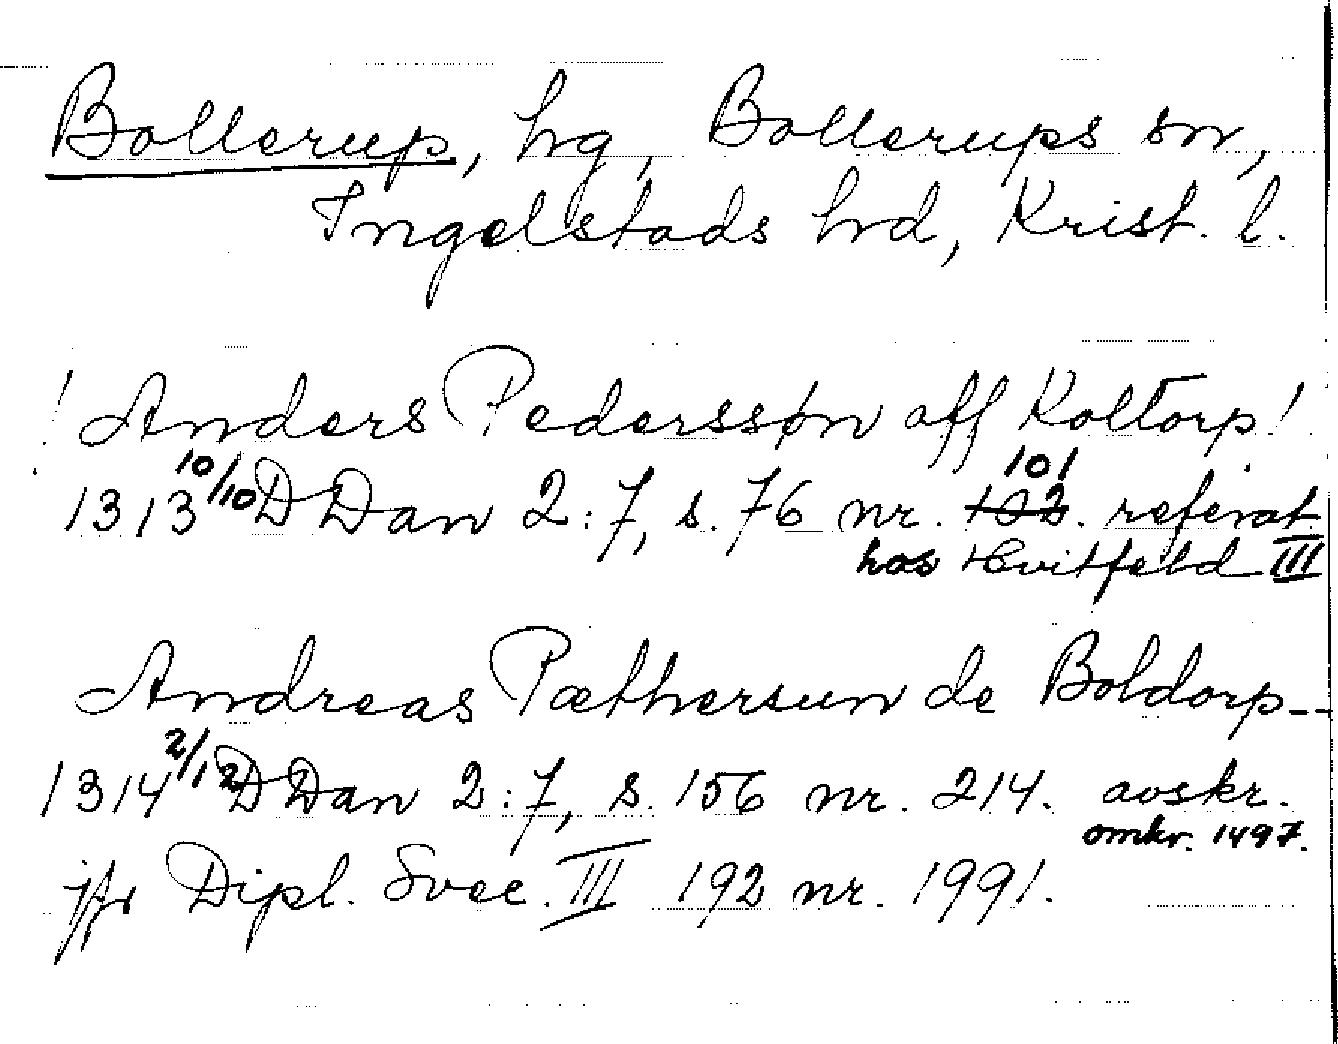 Bollerup, hg, Bollerups sn,
Ingelstads hrd, Krist. l.
! Anders Pederssøn aff Koltorp!
1313 10/10 DDan 2:7, s. 76 nr. 101 referat
hos Hvitfeld III
Andreas Pæthersun de Boldorp--
1314 2/12 DDan 2:7, s. 156 nr. 214. avskr.
omkr. 1497.
jfr Dipl. Svec. III 192 nr. 1991.